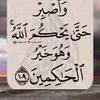 وَٱصْبِرْ
حَتَّىٰ يَحْكُمَ ٱللَّهُ ۚ
وَهُوَ خَيْرُ
ٱلْحَٰكِمِينَ ١٠٩